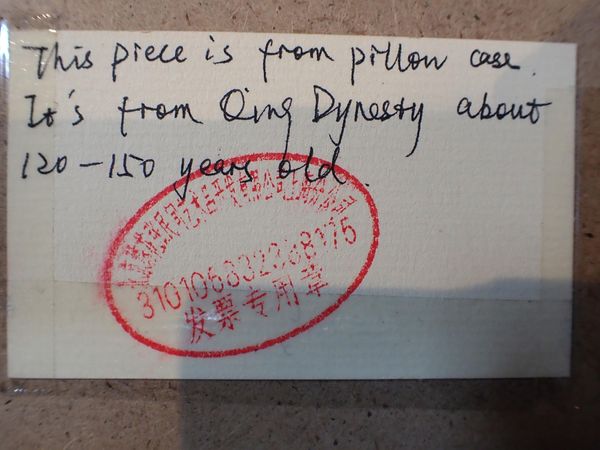 This piece is from pillow case.
It's from Qing Dynasty about
120-150 years old.
310106832368175
发票专用章